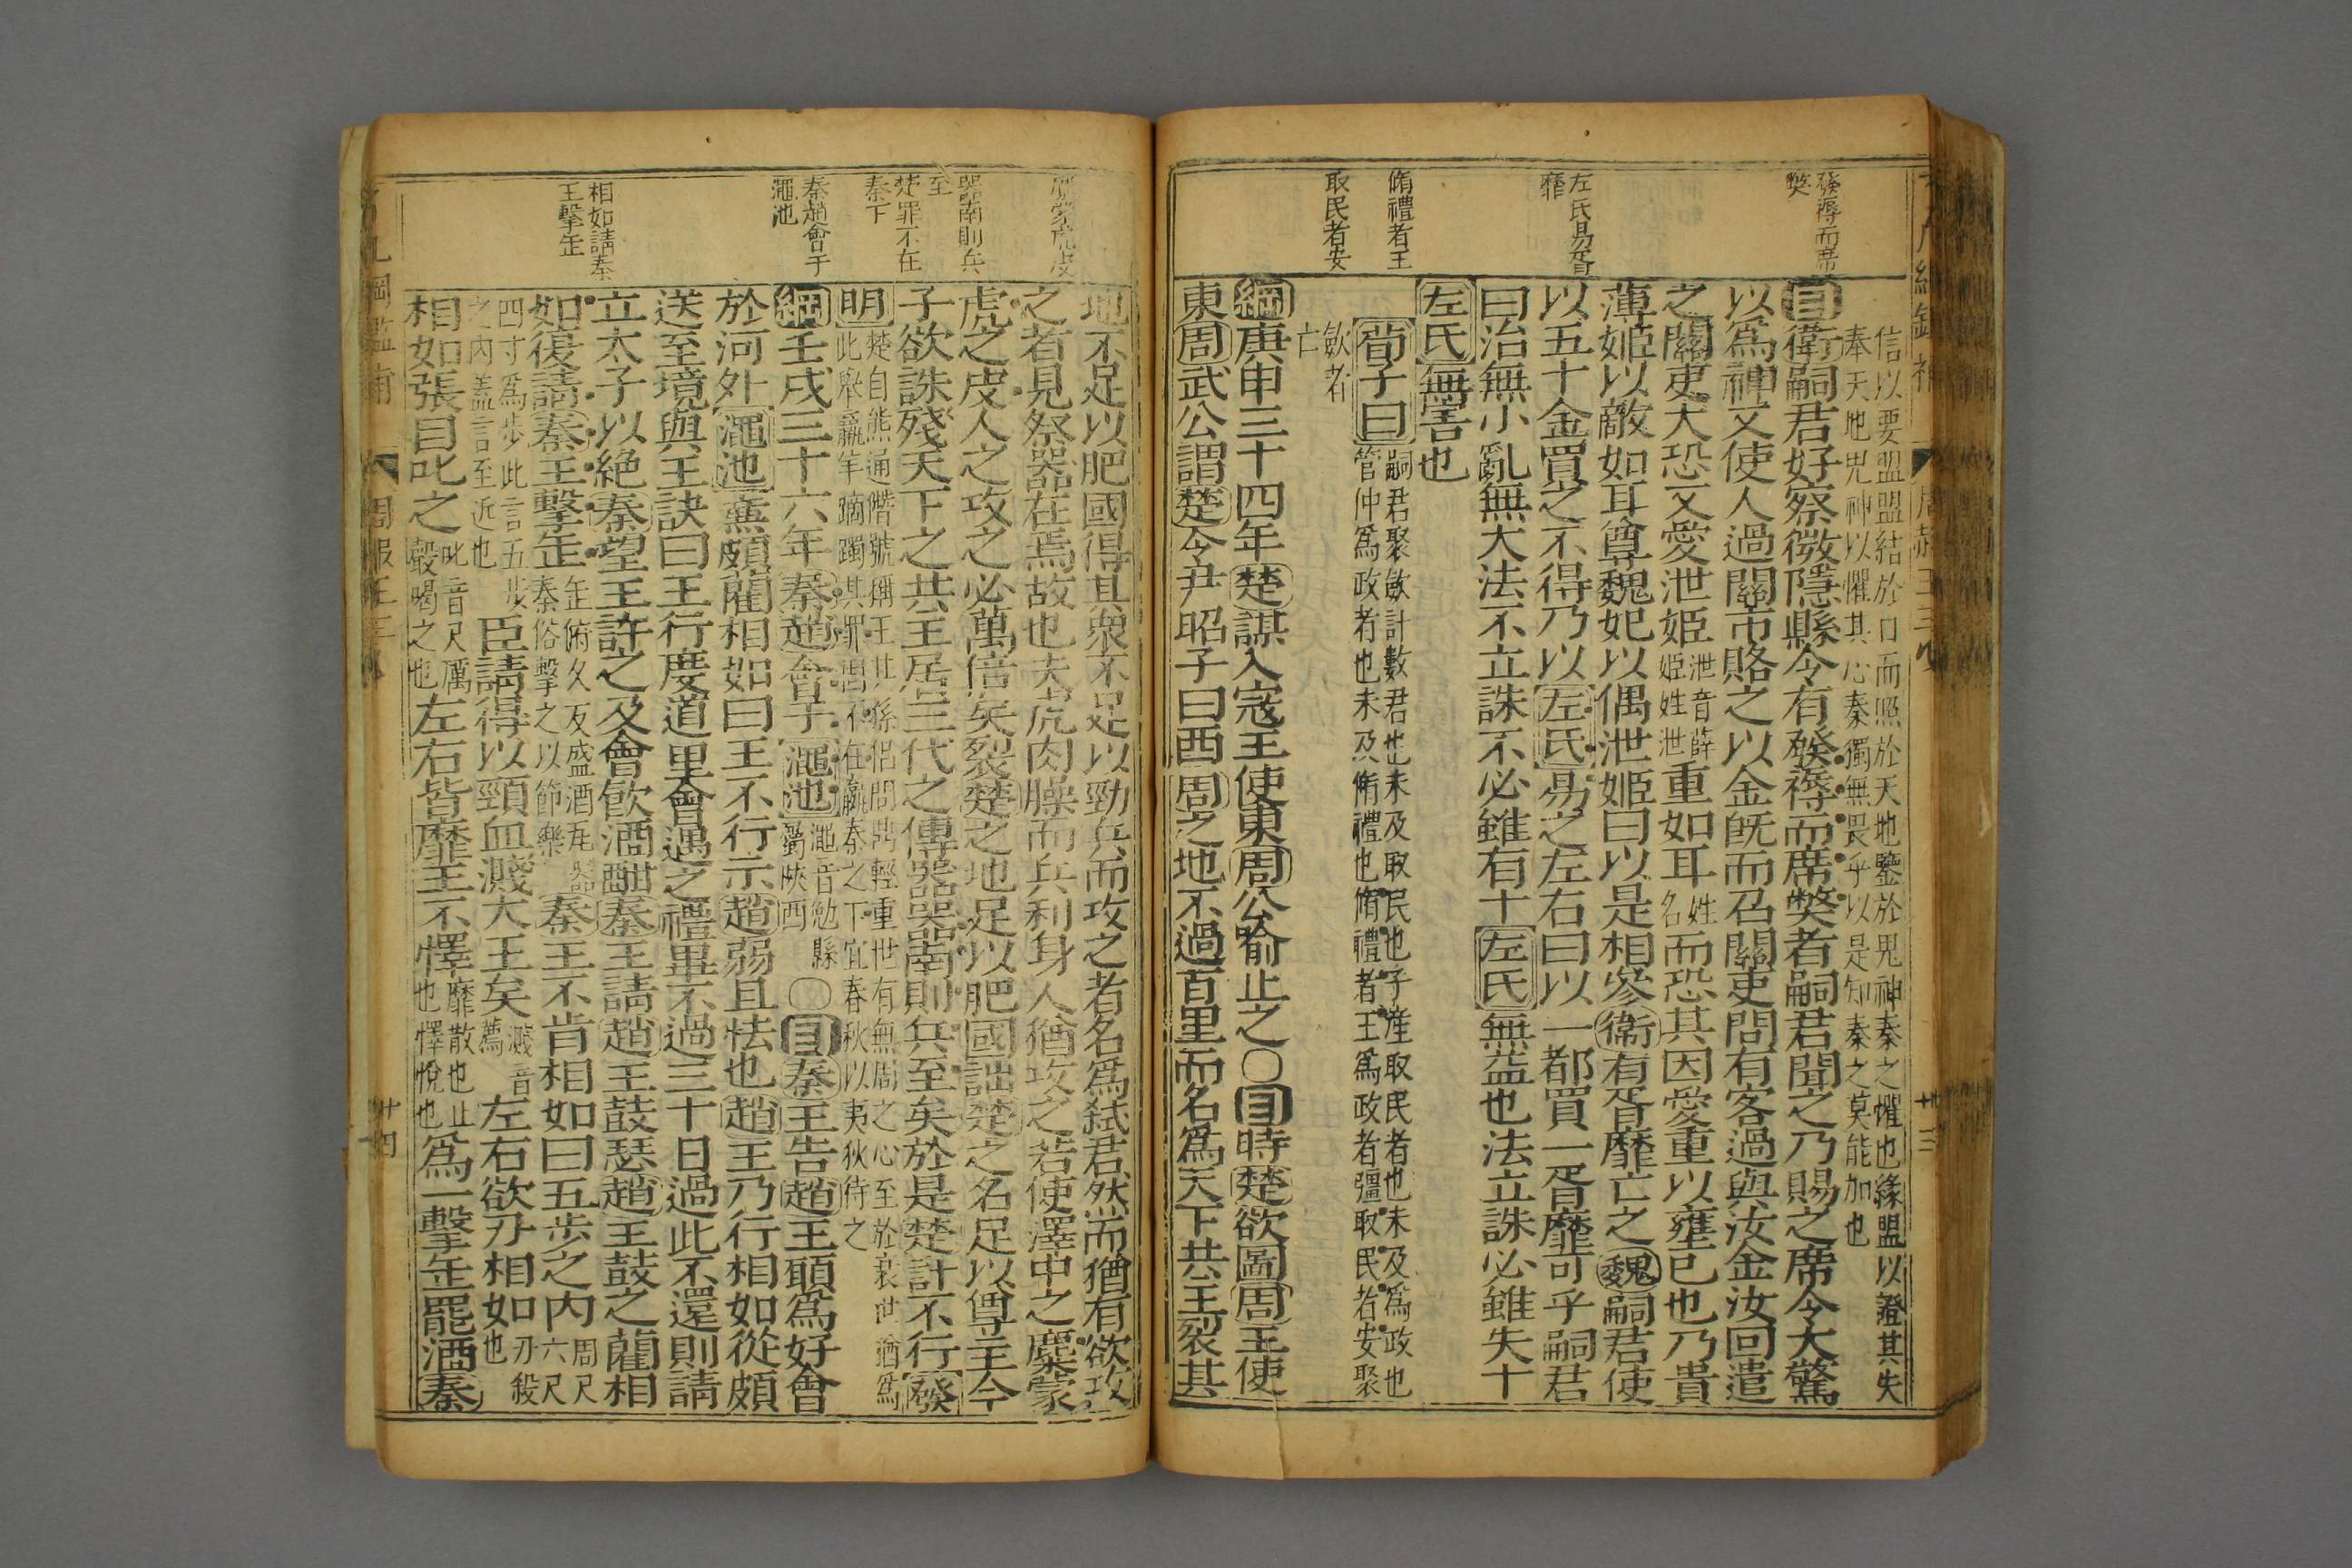 發褥而席
獘
左氏易胥
靡
脩禮者王
取民者安
信以要盟盟結於口而照於天地鑒於鬼神秦之懼也緣盟以證其失
奉天地鬼神以懼其心秦獨無畏乎以是知秦之莫能加也
目衛嗣君好察微隱縣令有發褥而席獘者嗣君聞之乃賜之席令大驚
以爲神又使人過關市賂之以金旣而召關吏問有客過與汝金汝回遣
之關吏大恐又愛泄姬泄音薛姬姓泄重如耳姓名而恐其因愛重以壅己也乃貴
薄姬以敵如耳尊魏妃以偶泄姬曰以是相參衛有胥靡亡之魏嗣君使
以五十金買之不得乃以左氏易之左右曰以一都買一胥靡可乎嗣君
曰治無小亂無大法不立誅不必雖有十左氏無益也法立誅必雖失十
左氏無害也
荀子曰嗣君聚斂計數君也未及取民也子產取民者也未及爲政也
管仲爲政者也未及脩禮也脩禮者王爲政者彊取民者安聚
斂者
亡
綱庚申三十四年楚謀入寇王使東周公喻止之〇目時楚欲圖周王使
東周武公謂楚令尹昭子曰西周之地不過百里而名爲天下共主裂其
虎蒙虎皮
器南則兵
至
楚罪不在
秦下
秦趙會于
澠池
相如請秦
王擊缶
地不足以肥國得其衆不足以勁兵而攻之者名爲弒君然而猶有欲攻
之者見祭器在焉故也夫虎肉臊而兵利身人猶攻之若使澤中之麋蒙
虎之皮人之攻之必萬倍矣裂楚之地足以肥國詘楚之名足以尊主今
子欲誅殘天下之共主居三代之傳器器南則兵至矣於是楚計不行發
明楚自熊通僭號稱王其孫侶問鼎輕重世有無周之心至於衰世猶爲
此舉羸牟蹢躅其罪固不在嬴秦之下宜春秋以夷狄待之
綱壬戌三十六年秦趙會于澠池澠音勉縣屬陝西〇目秦王告趙王願爲好會
於河外澠池藨頗藺相如曰王不行示趙弱且怯也趙王乃行相如從頗
送至境與王訣曰王行度道里會遇之禮畢不過三十日過此不還則請
立太子以絶秦望王許之及會飮酒酣秦王請趙王鼓瑟趙王鼓之藺相
如復請秦王擊缶缶俯久反盛酒瓦器秦俗擊之以節樂秦王不肯相如曰五步之内周尺六尺
四寸爲步此言五步之内蓋言至近也臣請得以頸血濺大王矣濺音薦左右欲刃相如刃殺也
相如張目叱之叱音尺厲聲喝之也左右皆靡王不懌靡散也止也懌悅也爲一擊缶罷酒秦
周赧王三十六
廿四